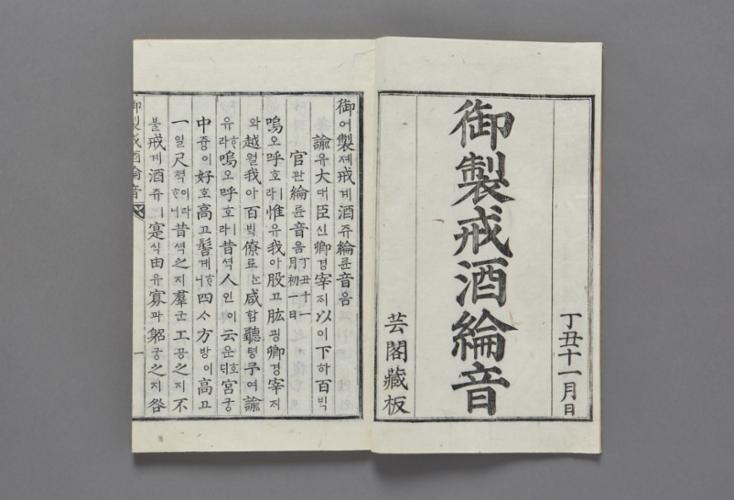 丁丑十一月日
御製戒酒綸音
芸閣藏板
御어製졔戒계酒쥬綸륜音음
諭유大대臣신卿경宰ᄌᆡ以이下하百ᄇᆡᆨ
官관綸륜音음丁丑十一月初一日
嗚오呼호ㅣ라惟유我아股고肱굉卿경宰ᄌᆡ
와越월我아百ᄇᆡᆨ僚료ᄂᆞᆫ咸함聽텽予여諭
유ᄒᆞ라嗚오呼호ㅣ라昔셕人인이云운호ᄃᆡ宮궁
中듕이好호高고髻계ᄒᆞ니四ᄉᆞ方방이高고
一일尺쳑이라ᄒᆞ니昔셕之지羣군工공之지不
블戒계酒쥬ㅣ寔식由유寡과躬궁之지咎
御製戒酒綸音
一